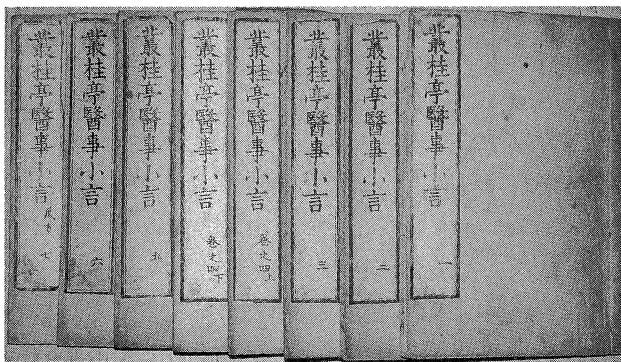 叢桂亭醫事小言 一
叢桂亭醫事小言 二
叢桂亭醫事小言 三
叢桂亭醫事小言 卷之四上
叢桂亭醫事小言 卷之四下
叢桂亭醫事小言 五
叢桂亭醫事小言 六
叢桂亭醫事小言 七